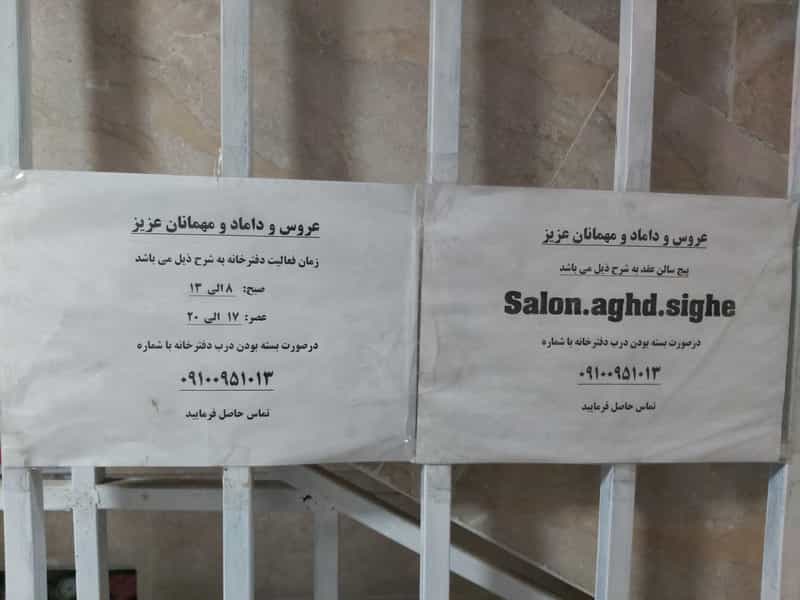 عروس و داماد و مهمانان عزیز
زمان فعالیت دفترخانه به شرح ذیل می باشد
صبح: ۸ الی ۱۳
عصر: ۱۷ الی ۲۰
درصورت بسته بودن درب دفترخانه با شماره
۰۹۱۰۰۹۵۱۰۱۳
تماس حاصل فرمایید
عروس و داماد و مهمانان عزیز
پیج سالن عقد به شرح ذیل می باشد
Salon.aghd.sighe
درصورت بسته بودن درب دفترخانه با شماره
۰۹۱۰۰۹۵۱۰۱۳
تماس حاصل فرمایید